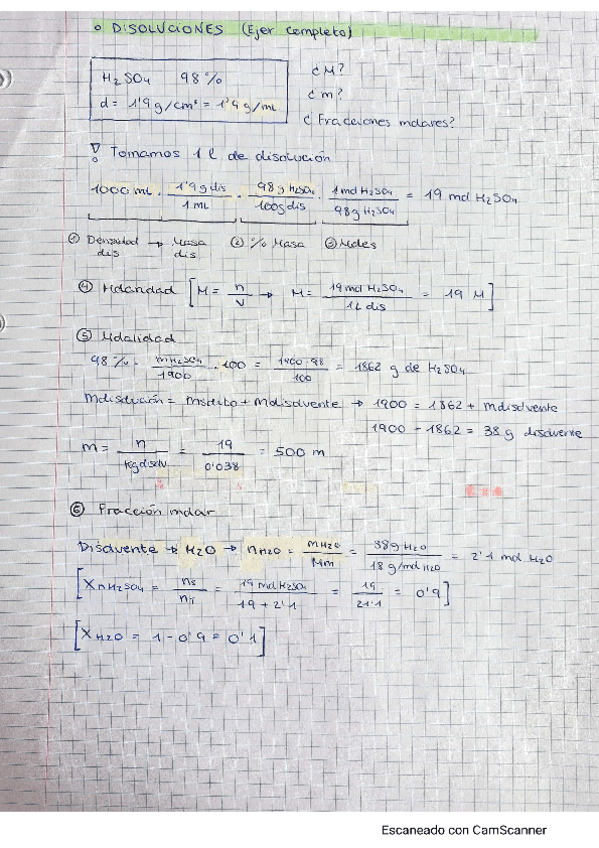 o DISOLUCIONES (Ejer completo)
H₂SO₄ 98%
d = 1'9 g/cm³ = 1'9 g/mL
¿M?
¿m?
¿Fracciones molares?
Tomamos 1 l de disolución
1000 mL · 1'9 g dis / 1 mL · 98 g H₂SO₄ / 100 g dis · 1 mol H₂SO₄ / 98 g H₂SO₄ = 19 mol H₂SO₄
① Densidad dis → Masa dis ② % Masa ③ Moles
④ Molaridad [M = n / V → M = 19 mol H₂SO₄ / 1 L dis = 19 M]
⑤ Molalidad
98% = mH₂SO₄ / 1900 · 100 = 1900·98 / 100 = 1862 g de H₂SO₄
mdisolución = msoluto + mdisolvente → 1900 = 1862 + mdisolvente
1900 - 1862 = 38 g disolvente
m = n / Kg disolv = 19 / 0'038 = 500 m
⑥ Fracción molar
Disolvente → H₂O → nH₂O = mH₂O / Mm = 38 g H₂O / 18 g/mol H₂O = 2'1 mol H₂O
[XnH₂SO₄ = ns / nT = 19 mol H₂SO₄ / 19 + 2'1 = 19 / 21'1 = 0'9]
[XH₂O = 1 - 0'9 = 0'1]
Escaneado con CamScanner